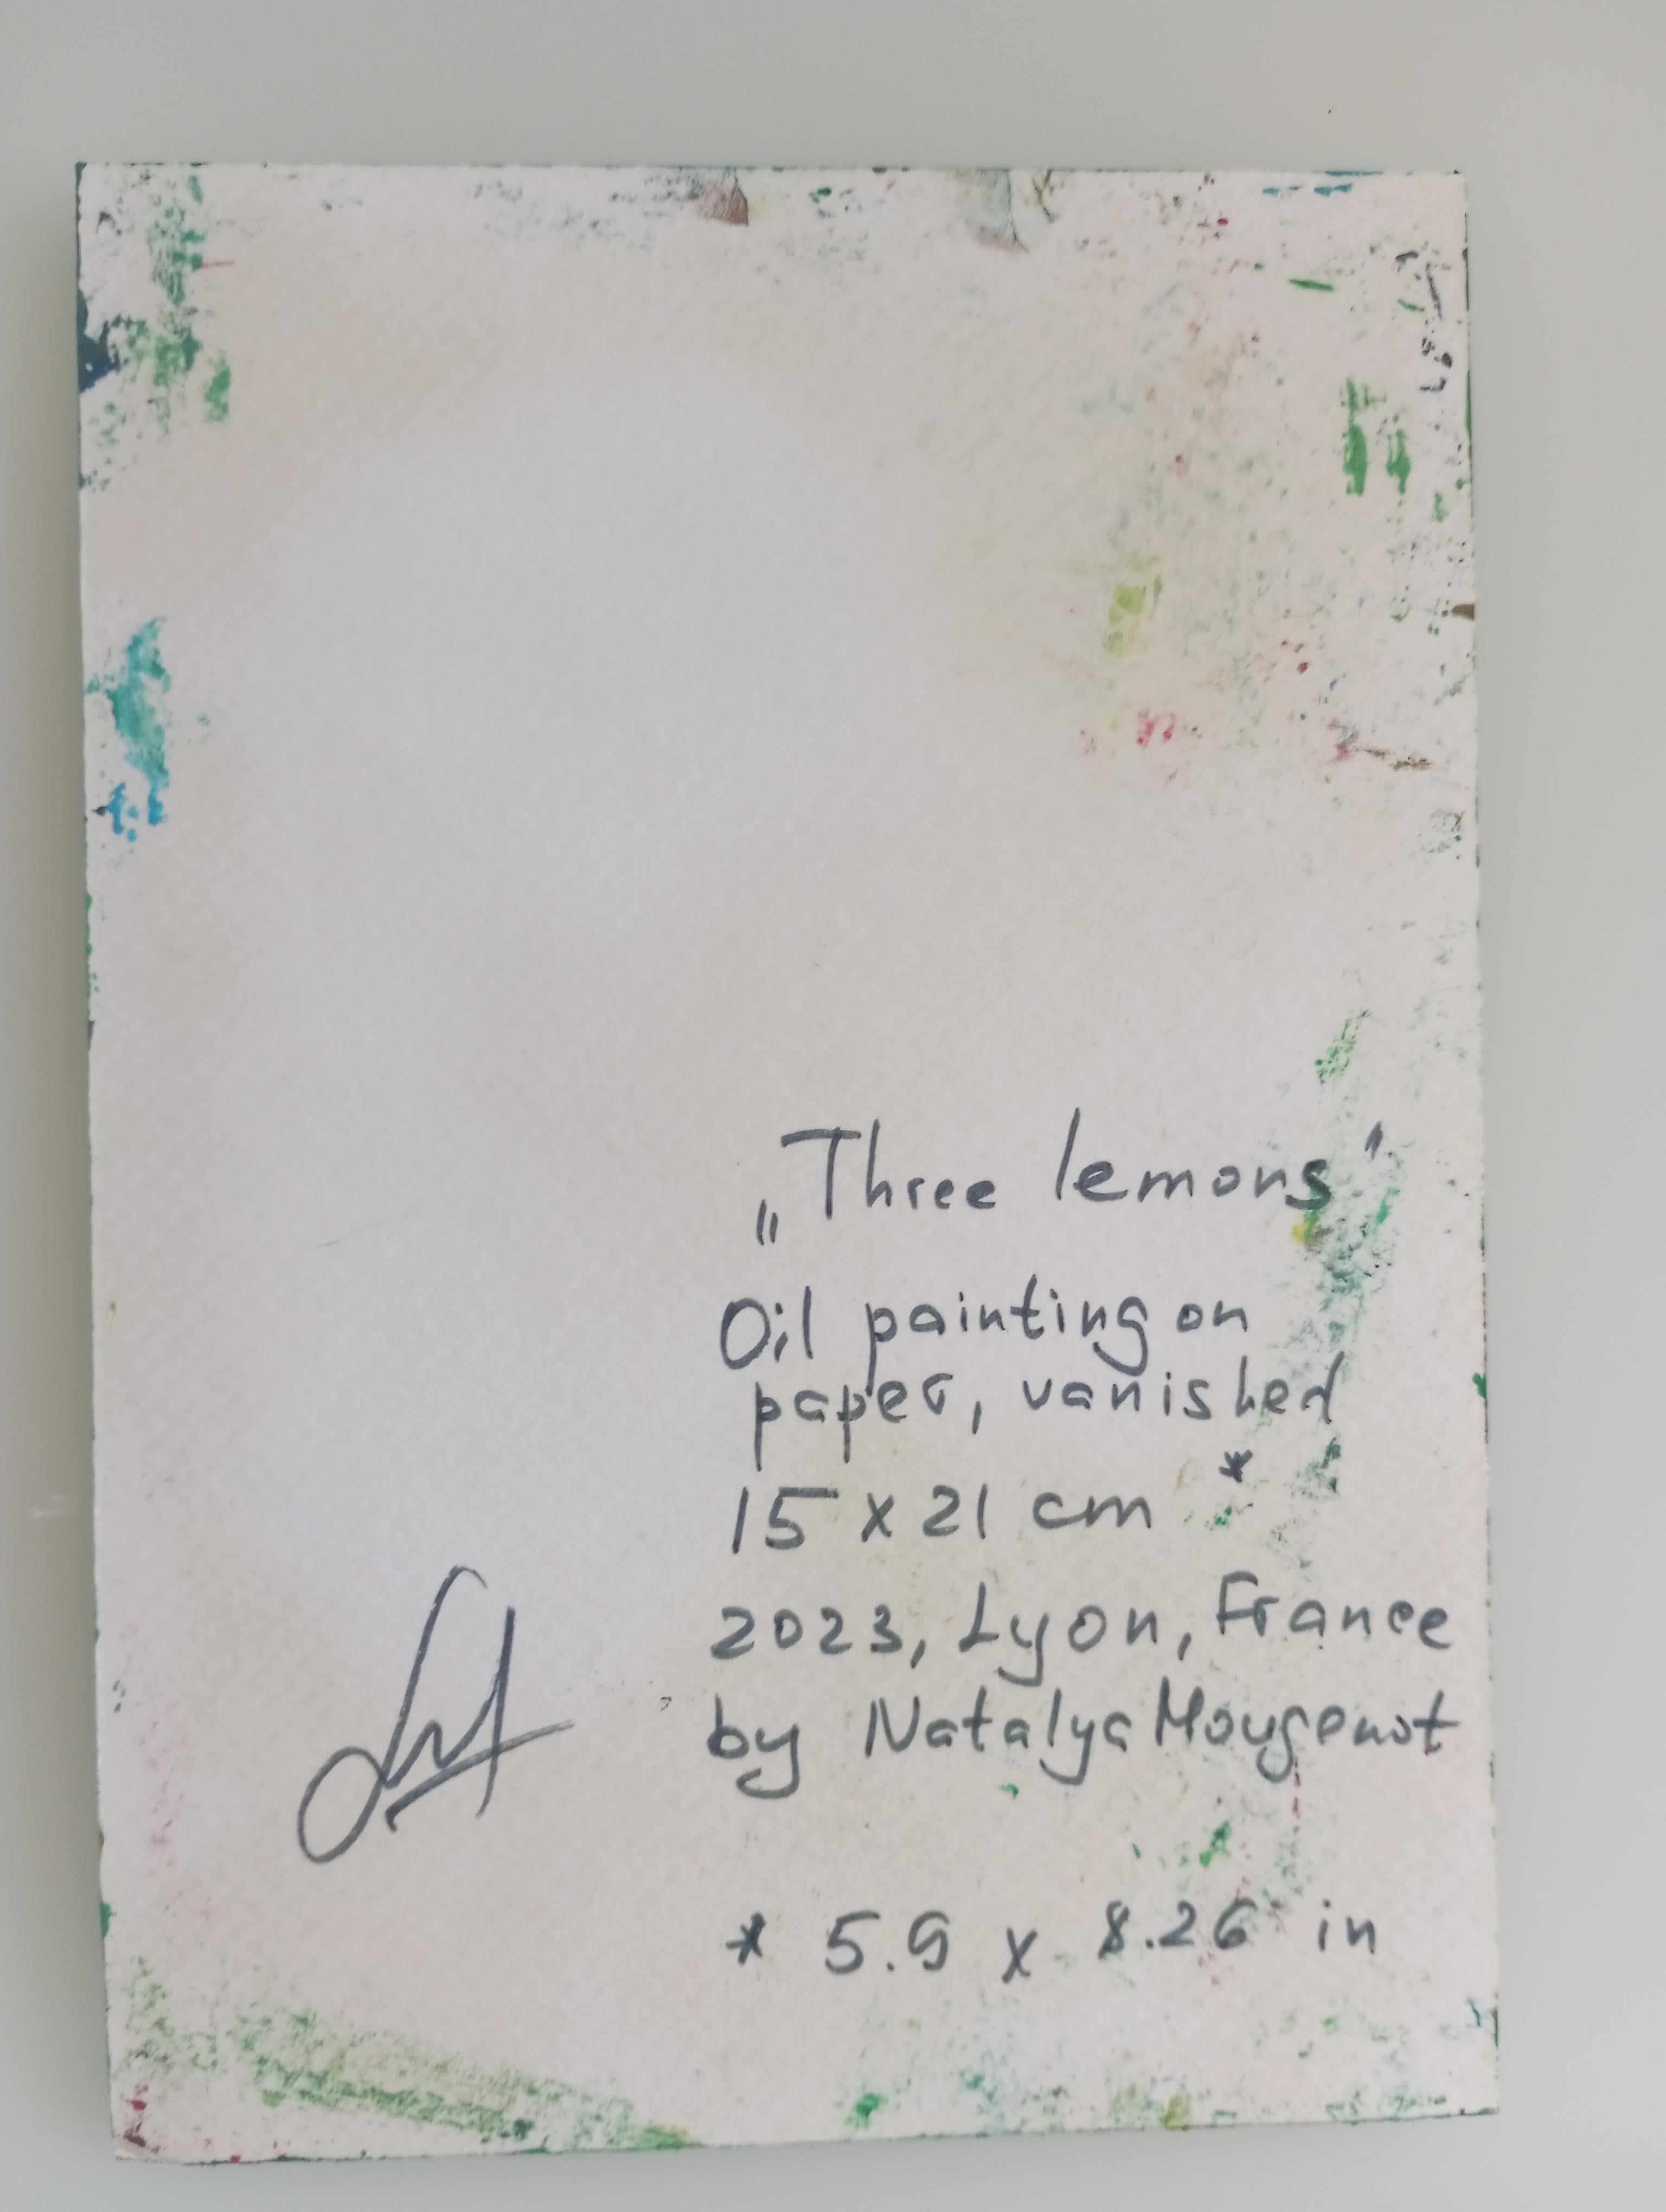 „Three lemons"
Oil painting on
paper, vanished
15 x 21 cm *
2023, Lyon, France
by Natalya Mougenot
* 5.9 x 8.26 in